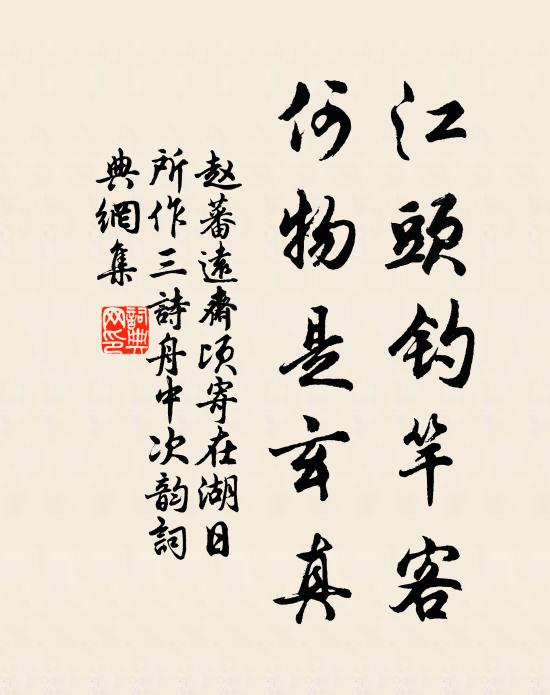 江頭釣竿客
何物是玄真
赵蕃遠齋頃寄在湖日
所作三詩舟中次韵詞
典網集
詞典网印